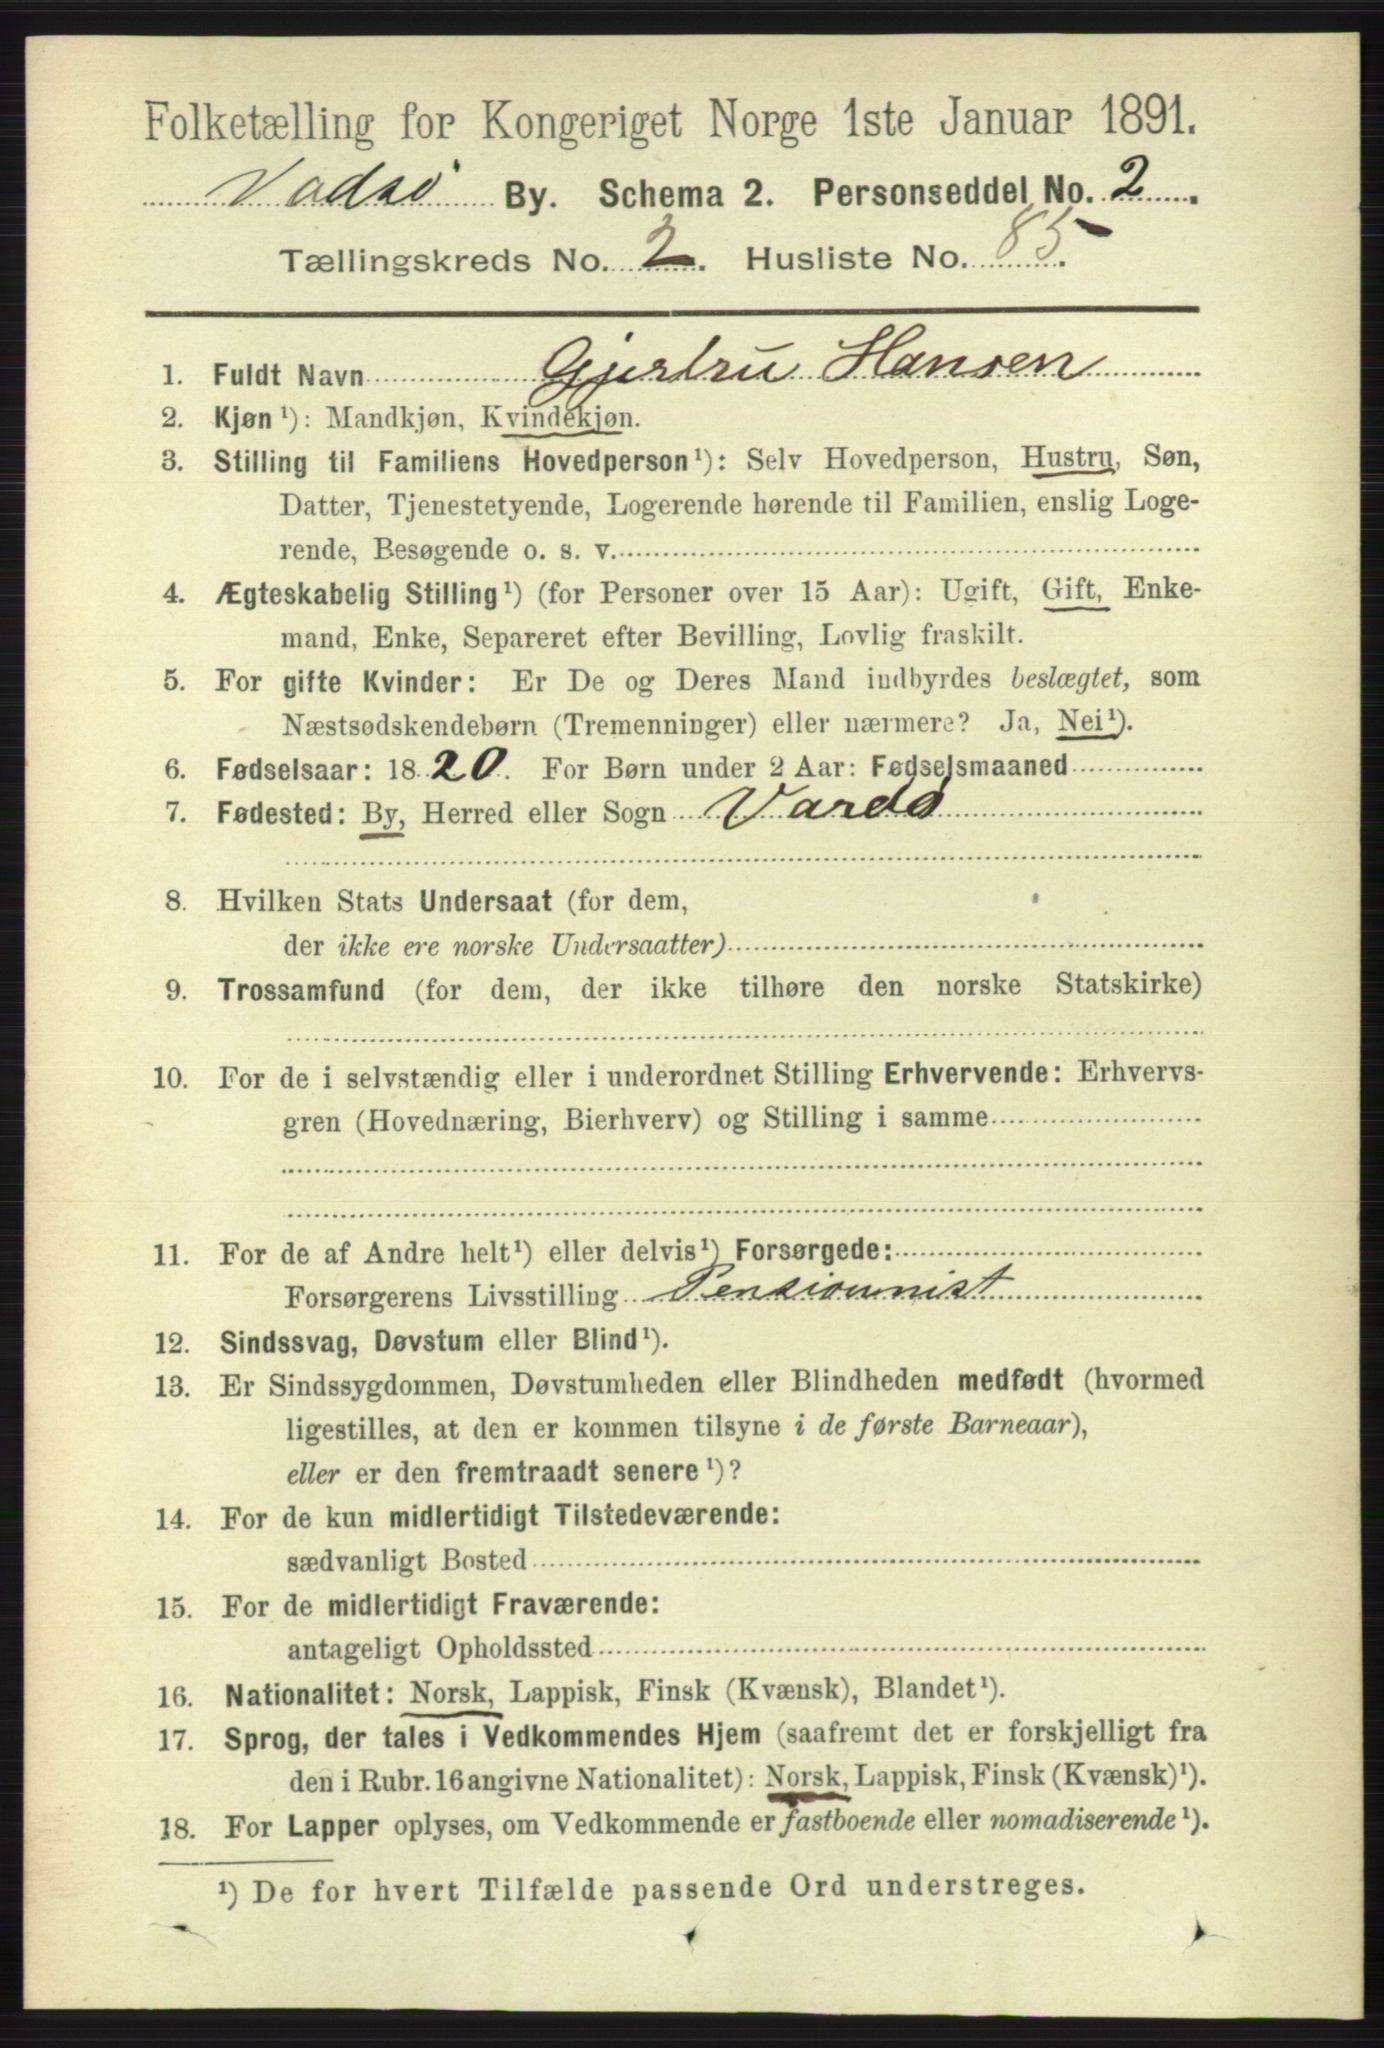 Folketælling for Kongeriget Norge 1ste Januar 1891.
Vadsø By. Schema 2. Personseddel No. 2.
Tællingskreds No. 2. Husliste No. 85.
1. Fuldt Navn Gjertru Hansen
2. Kjøn¹): Mandkjøn, Kvindekjøn.
3. Stilling til Familiens Hovedperson¹): Selv Hovedperson, Hustru, Søn,
Datter, Tjenestetyende, Logerende hørende til Familien, enslig Loge-
rende, Besøgende o. s. v.
4. Ægteskabelig Stilling¹) (for Personer over 15 Aar): Ugift, Gift, Enke-
mand, Enke, Separeret efter Bevilling, Lovlig fraskilt.
5. For gifte Kvinder: Er De og Deres Mand indbyrdes beslægtet, som
Næstsødskendebørn (Tremenninger) eller nærmere? Ja, Nei¹).
6. Fødselsaar: 1820. For Børn under 2 Aar: Fødselsmaaned
7. Fødested: By, Herred eller Sogn Vardø
8. Hvilken Stats Undersaat (for dem,
der ikke ere norske Undersaatter)
9. Trossamfund (for dem, der ikke tilhøre den norske Statskirke)
10. For de i selvstændig eller i underordnet Stilling Erhvervende: Erhvervs-
gren (Hovednæring, Bierhverv) og Stilling i samme
11. For de af Andre helt¹) eller delvis¹) Forsørgede:
Forsørgerens Livsstilling Pensionnist
12. Sindssvag, Døvstum eller Blind¹).
13. Er Sindssygdommen, Døvstumheden eller Blindheden medfødt (hvormed
ligestilles, at den er kommen tilsyne i de første Barneaar),
eller er den fremtraadt senere¹)?
14. For de kun midlertidigt Tilstedeværende:
sædvanligt Bosted
15. For de midlertidigt Fraværende:
antageligt Opholdssted
16. Nationalitet: Norsk, Lappisk, Finsk (Kvænsk), Blandet¹).
17. Sprog, der tales i Vedkommendes Hjem (saafremt det er forskjelligt fra
den i Rubr. 16 angivne Nationalitet): Norsk, Lappisk, Finsk (Kvænsk)¹).
18. For Lapper oplyses, om Vedkommende er fastboende eller nomadiserende¹).
¹) De for hvert Tilfælde passende Ord understreges.